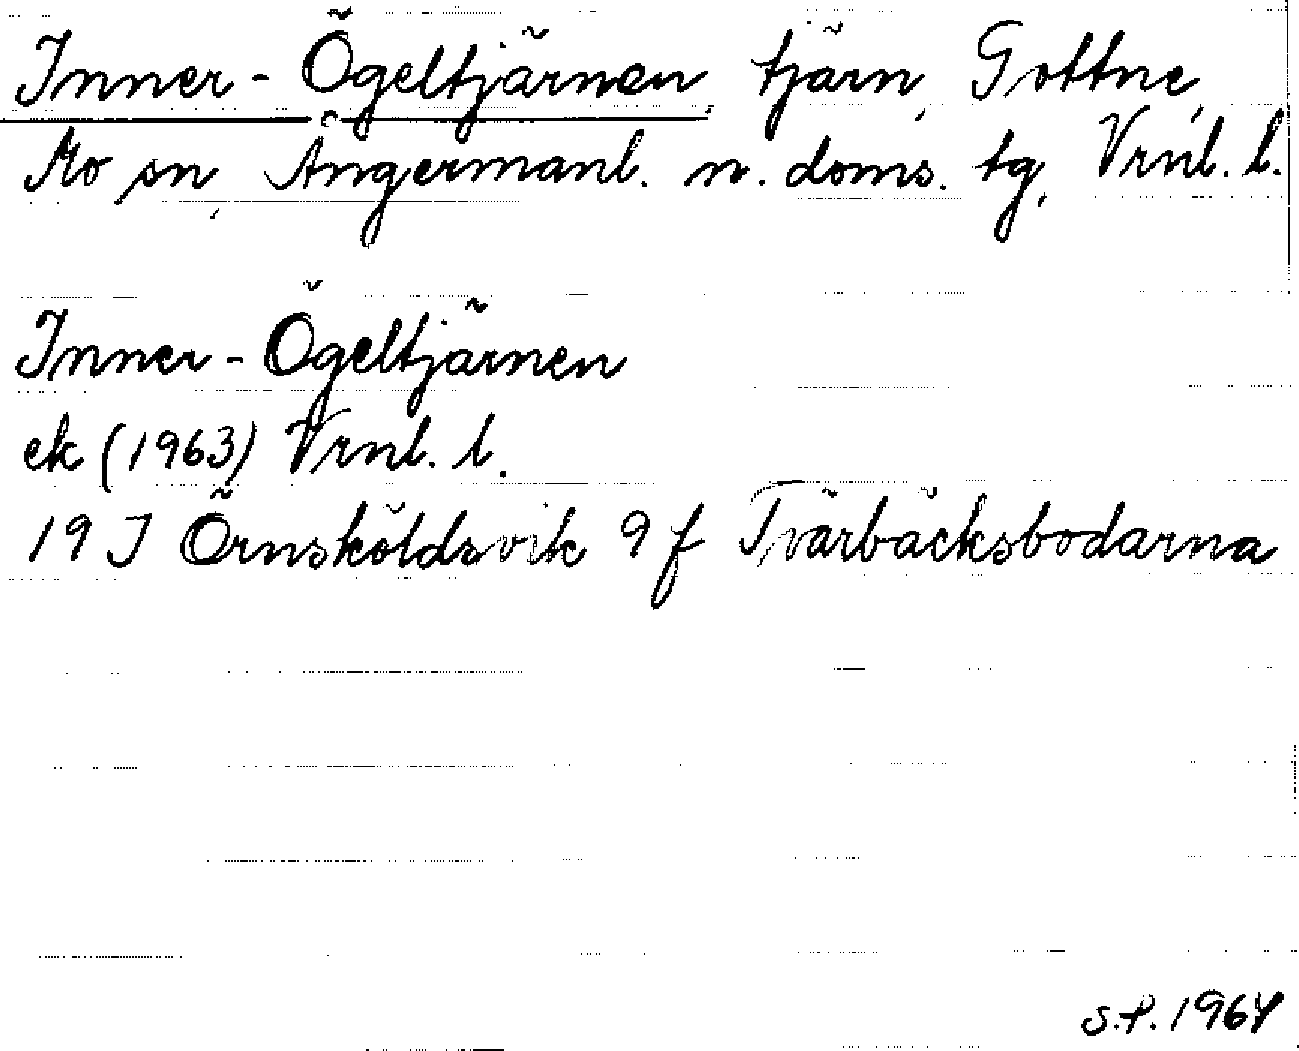 Inner-Ögeltjärnen, tjärn, Gottne,
Mo sn, Ångermanl. n. doms. tg, Vrnl. l.
Inner-Ögeltjärnen
ek (1963) Vrnl. l.
19 J Örnsköldsvik 9 f Tvärbäcksbodarna
S.P. 1964